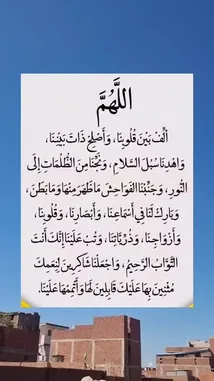 اللَّهُمَّ
أَلِّفْ بَيْنَ قُلُوبِنَا، وَأَصْلِحْ ذَاتَ بَيْنِنَا،
وَاهْدِنَا سُبُلَ السَّلَامِ، وَنَجِّنَا مِنَ الظُّلُمَاتِ إِلَى
النُّورِ، وَجَنِّبْنَا الفَوَاحِشَ مَا ظَهَرَ مِنْهَا وَمَا بَطَنَ،
وَبَارِكْ لَنَا فِي أَسْمَاعِنَا، وَأَبْصَارِنَا، وَقُلُوبِنَا،
وَأَزْوَاجِنَا، وَذُرِّيَّاتِنَا، وَتُبْ عَلَيْنَا إِنَّكَ أَنْتَ
التَّوَّابُ الرَّحِيمُ، وَاجْعَلْنَا شَاكِرِينَ لِنِعَمِكَ
مُثْنِينَ بِهَا عَلَيْكَ قَابِلِينَ لَهَا وَأَتْمِمْهَا عَلَيْنَا.